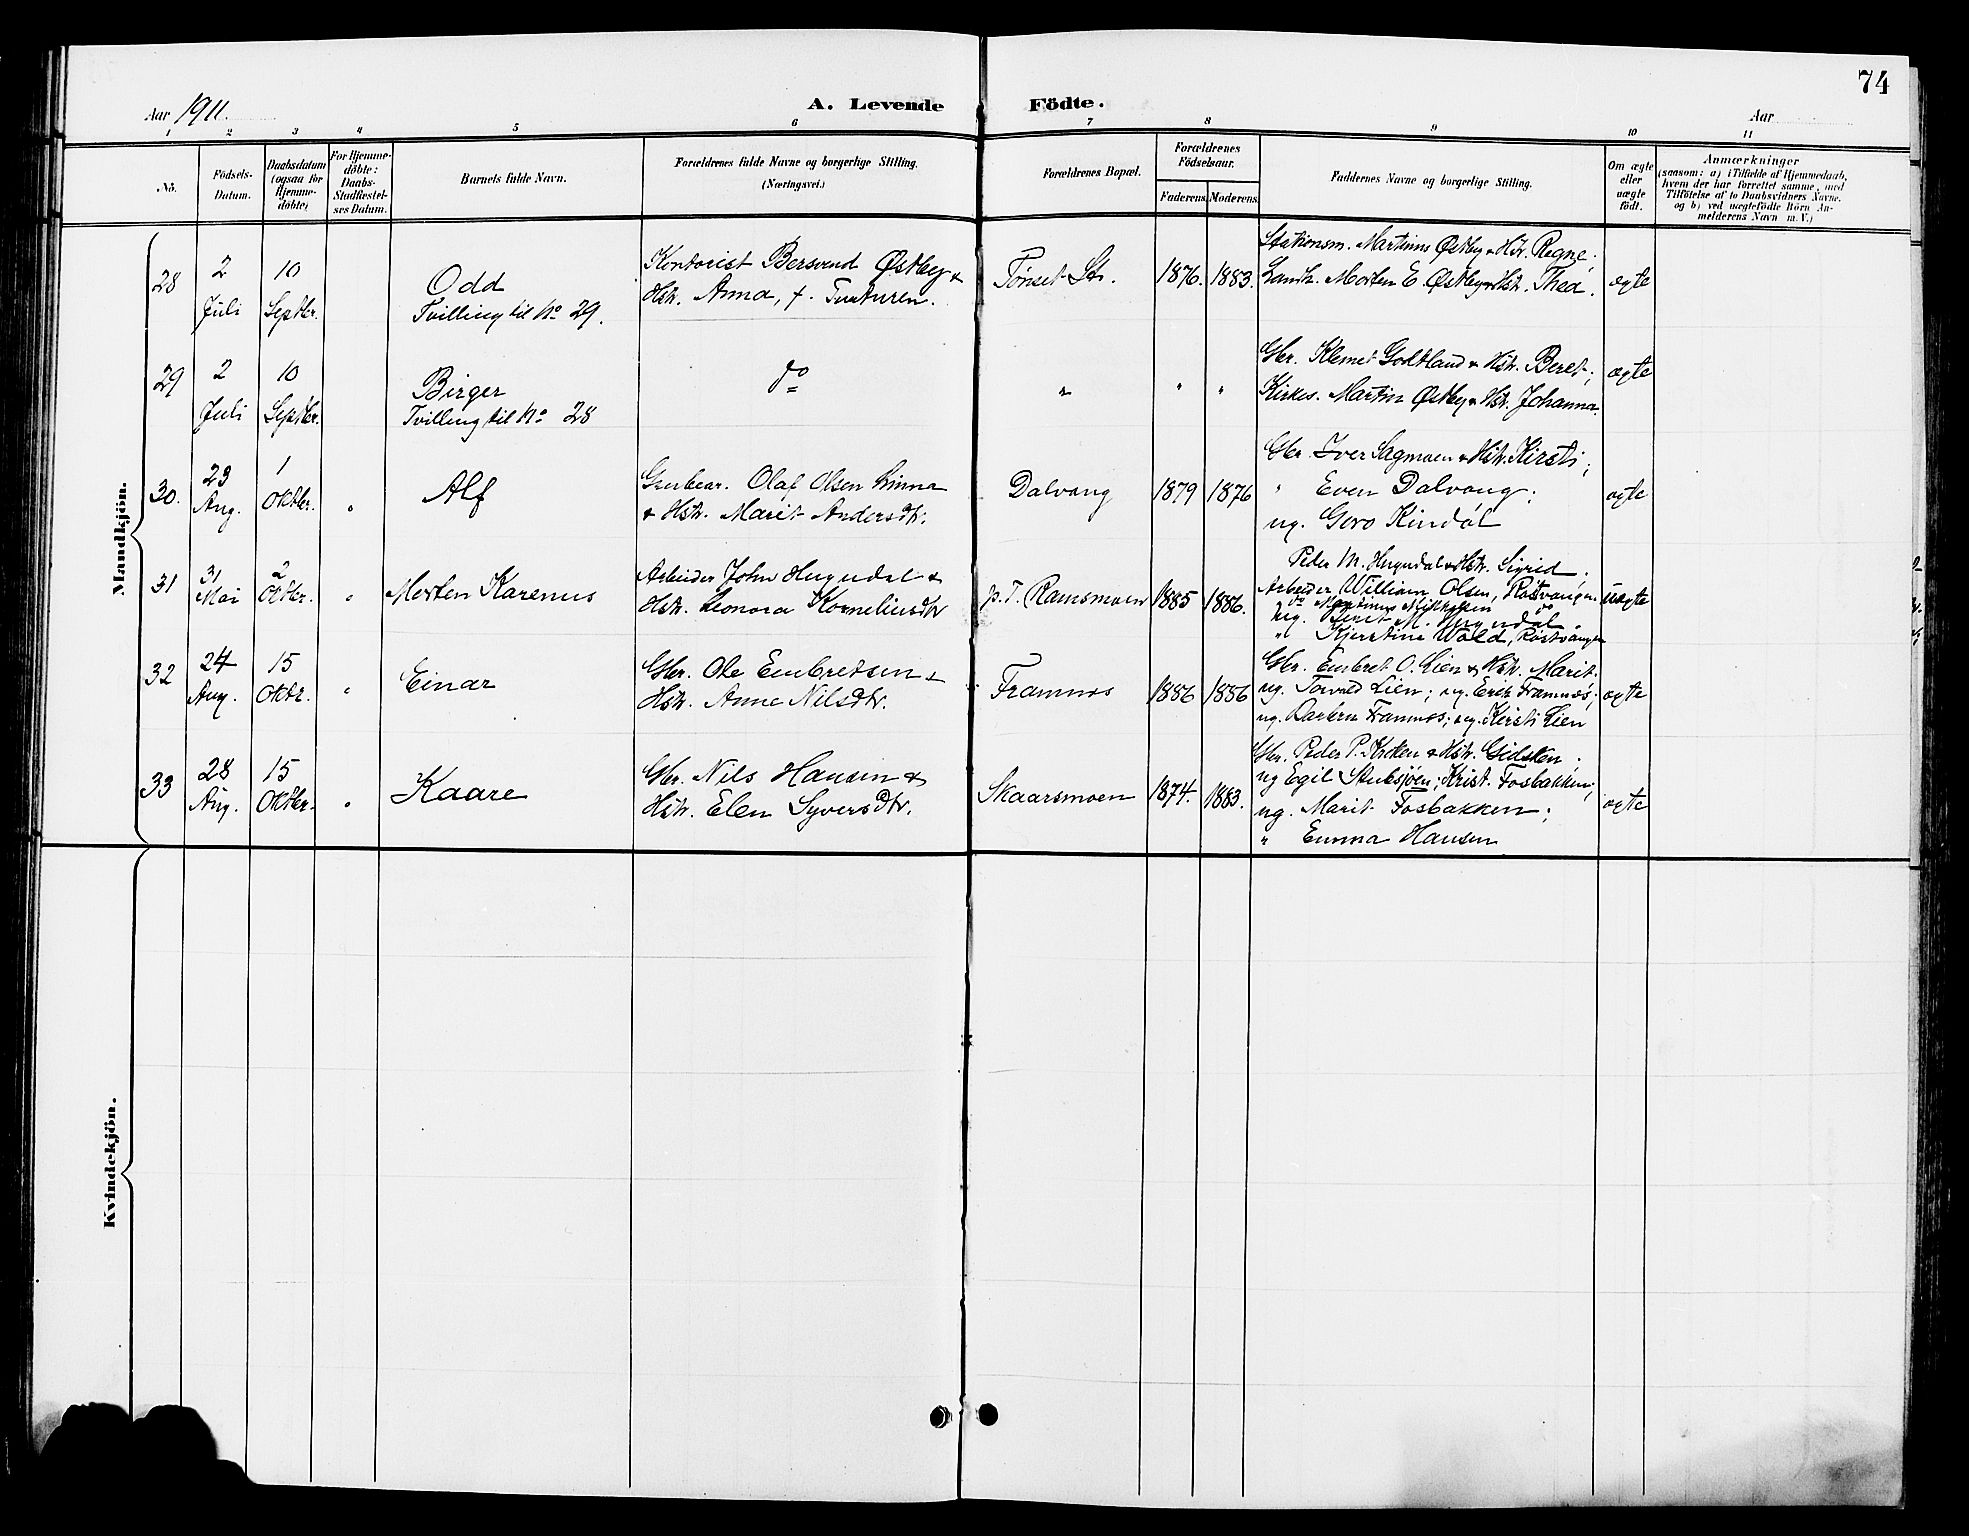 74
Aar 1911.
A. Levende Födte.
Aar
1 2 3 4 5 6 7 8 9 10 11
No.
Födsels-Datum.
Daabsdatum (ogsaa for Hjemme-döbte)
For Hjemme-döbte: Daabs-Stadfæstel-ses Datum.
Barnets fulde Navn.
Forældrenes fulde Navne og borgerlige Stilling.
(Næringsvei.)
Forældrenes Bopæl.
Forældrenes Födselsaar.
Faderens. Moderens.
Faddernes Navne og borgerlige Stilling.
Om ægte eller uægte födt.
Anmærkninger
(saasom: a) i Tilfælde af Hjemmedaab,
hvem der har forrettet samme, med
Tilföielse af to Daabsvidners Navne.
og b) ved uægtefödte Börn An-
melderens Navn m. V.)
Mandkjön.
28
2 Juli
10 Septbr.
Odd
Tvilling til No 29.
Kontorist Bersvend Østby &
Hstr. Anna, f.
Tønset St.
1876. 1883.
Stationsm. Martinus Østby & Hstr. Ragne;
Landh. Morten E. Østby & Hst. Thea.
ægte
29
2 Juli
10 Septbr.
Birger
Tvilling til No 28
do
" " "
Gbr. Klemet Godtland & Hstr. Beret;
Kirkes. Martin Østby & Hstr. Johanna.
ægte
30.
23 Aug.
1 Oktbr.
"
Alf
Grubear. Olaf Olsen Rinna
& Hstr. Marit Andersdtr.
Dalvang
1879 1876
Gbr. Iver Sagmoen & Hstr. Kirsti;
" Even Dalvang;
ug. Goro Kindøl
ægte
31
31 Mai
2 Oktbr.
"
Morten Karenus
Arbeider John Hugudal &
Hstr. Leonora Korneliusdtr
p.T. Ramsmoen
1885 1886.
Peder M. Hugudal & Hstr. Sigrid;
Arbeider William Olsen, Røstvangen
do Martinus Mikkelsen do
ug. Beret M. Hugudal.
" Kjerstine Wold, Røstvangen
uægte
32
24 Aug.
15 Oktbr.
"
Einar
Gbr. Ole Embretsen &
Hstr. Anne Nilsdtr.
Framnes
1886 1886
Gbr. Embret O. Lien & Hstr. Marit.
ug. Torvald Lien; ug. Erik Framnes;
ug. Barbra Framnes; ug. Kirsti Lien
ægte
33
28 Aug.
15 Oktbr.
"
Kaare
Gbr. Nils Hansen &
Hstr. Elen Syversdtr.
Skaarsmoen
1874. 1883.
Gbr. Peder P. Kroken & Hstr. Gidsken;
ug Egil Stubsjøen; Krist. Fosbakken;
ug. Marit Fosbakken;
" Emma Hansen
ægte
Kvindekjön.